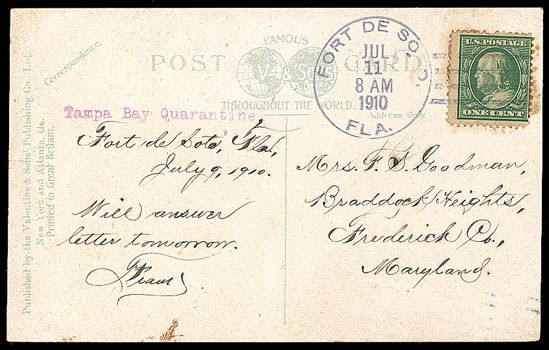 Correspondence.
POST CARD
FAMOUS
V & Sons
THROUGHOUT THE WORLD.
Address Only.
Published by the Valentine & Sons' Publishing Co., Ltd.
New York and Atlanta, Ga.
Printed in Great Britain.
Tampa Bay Quarantine,
Fort de Soto, Fla,
July 9, 1910.
Will answer
letter tomorrow.
FORT DE SOTO.
JUL
11
8 AM
1910
FLA.
U.S. POSTAGE
ONE CENT
Mrs. F. S. Goodman,
Braddock Heights,
Frederick Co.,
Maryland.